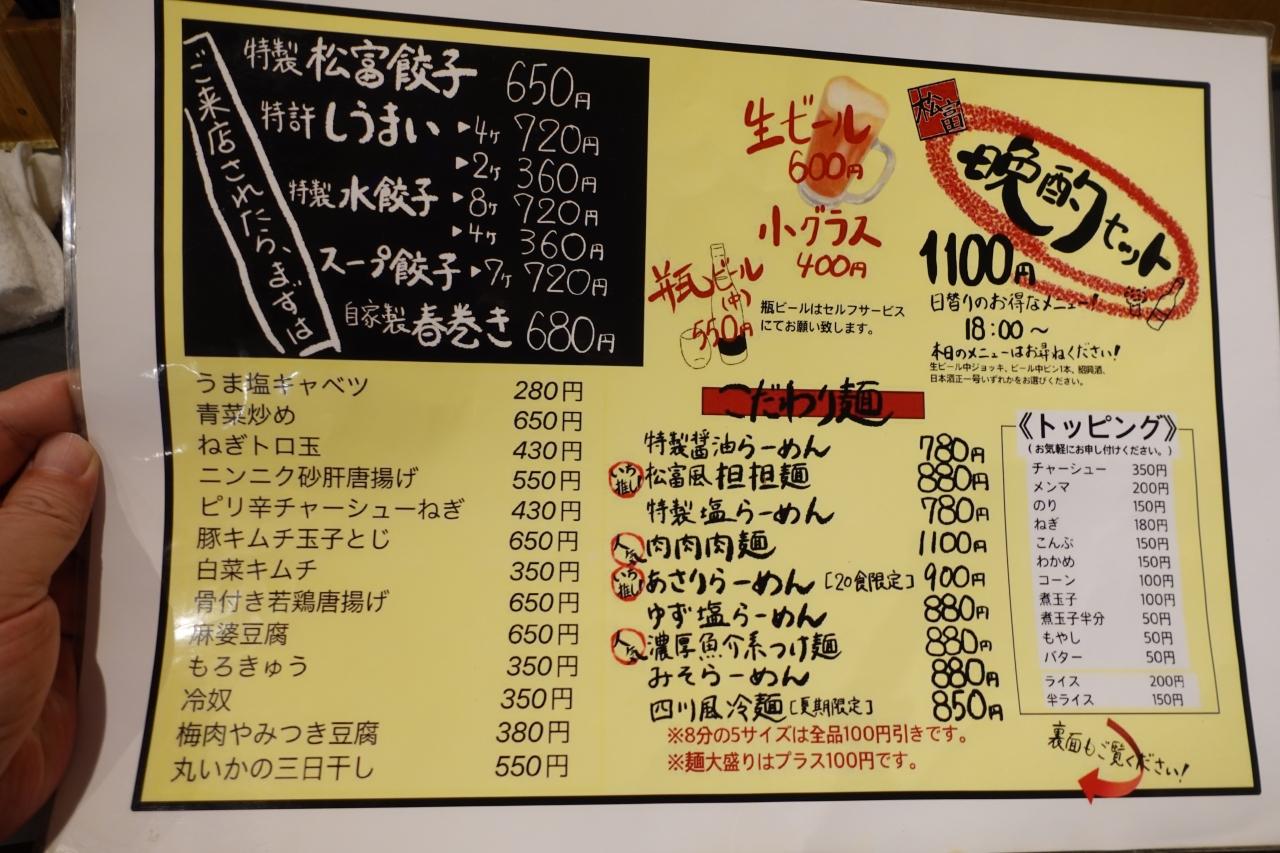 ご来店されたら、まずは
特製 松富餃子 650円
特許 しうまい ▶4ヶ 720円
▶2ヶ 360円
特製 水餃子 ▶8ヶ 720円
▶4ヶ 360円
スープ餃子 ▶7ヶ 720円
自家製 春巻き 680円
うま塩キャベツ 280円
青菜炒め 650円
ねぎトロ玉 430円
ニンニク砂肝唐揚げ 550円
ピリ辛チャーシューねぎ 430円
豚キムチ玉子とじ 650円
白菜キムチ 350円
骨付き若鶏唐揚げ 650円
麻婆豆腐 650円
もろきゅう 350円
冷奴 350円
梅肉やみつき豆腐 380円
丸いかの三日干し 550円
生ビール
600円
小グラス
400円
瓶ビール
(中)
550円
瓶ビールはセルフサービス
にてお願い致します。
松富
晩酌セット
1100円
日替りのお得なメニュー!
18:00～
本日のメニューはお尋ねください!
生ビール中ジョッキ、ビール中ビン1本、紹興酒、
日本酒正一号いずれかをお選びください。
こだわり麺
特製醤油らーめん 780円
いち推し 松富風担担麺 880円
特製塩らーめん 780円
人気 肉肉肉麺 1100円
いち推し あさりらーめん [20食限定] 900円
ゆず塩らーめん 880円
人気 濃厚魚介系つけ麺 880円
みそらーめん 880円
四川風冷麺 [夏期限定] 850円
※8分の5サイズは全品100円引きです。
※麺大盛りはプラス100円です。
《トッピング》
(お気軽にお申し付けください。)
チャーシュー 350円
メンマ 200円
のり 150円
ねぎ 180円
こんぶ 150円
わかめ 150円
コーン 100円
煮玉子 100円
煮玉子半分 50円
もやし 50円
バター 50円
ライス 200円
半ライス 150円
裏面もご覧ください!